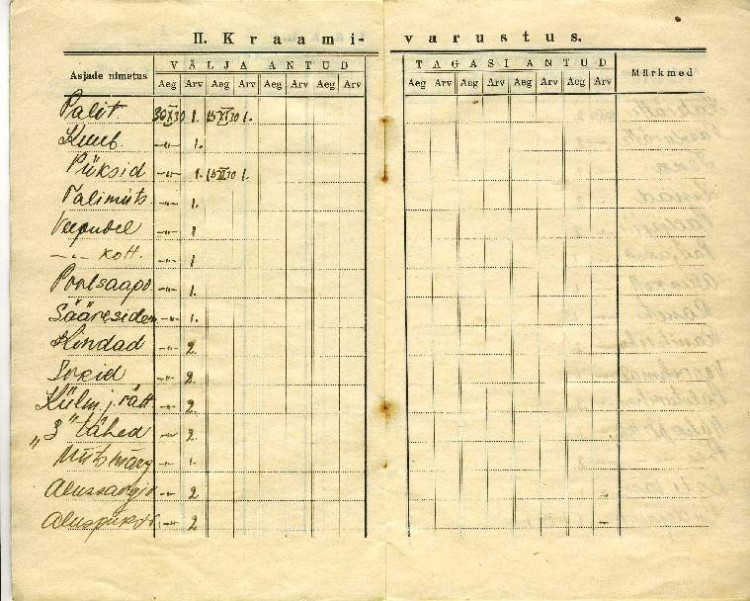 II. Kraami- varustus.
Asjade nimetus VÄLJA ANTUD TAGASI ANTUD Märkmed
Aeg Arv Aeg Arv Aeg Arv Aeg Arv Aeg Arv Aeg Arv Aeg Arv Aeg Arv
Palit. 30 XI 30 1. 15 1.
Kuub. -"- 1.
Püksid -"- 1. 15 1.
Talimüts. -"- 1.
Veepudel -"- 1
-"- kott. -"- 1
Poolsaapa -"- 1.
Sääresidem -"- 1.
Kindad -"- 2
Sokid -"- 2.
Külm. j. rätt -"- 2
"3" tähed -"- 2.
Mütsmärg -"- 1.
Alussärgid -"- 2
Aluspüksid -"- 2